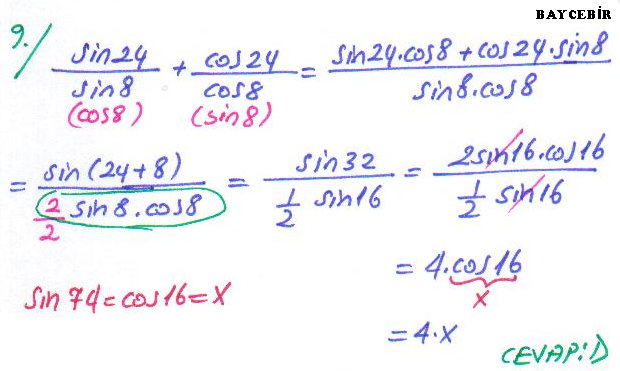 BAYCEBİR
9./ sin24/sin8 + cos24/cos8 = (sin24.cos8 + cos24.sin8)/(sin8.cos8)
(cos8) (sin8)
= sin(24+8)/(2/2 sin8.cos8) = sin32/(1/2 sin16) = 2sin16.cos16/(1/2 sin16)
= 4.cos16
x
sin74=cos16=x
= 4.x
CEVAP:D